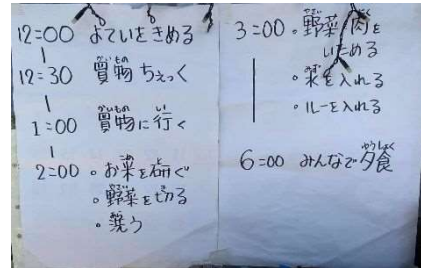 12:00 よていをきめる
12:30 買物ちぇっく
1:00 買物に行く
2:00 ・お米を研ぐ
・野菜を切る
・洗う
3:00 ・野菜/肉を
いためる
・水を入れる
・ルーを入れる
6:00 みんなで夕食